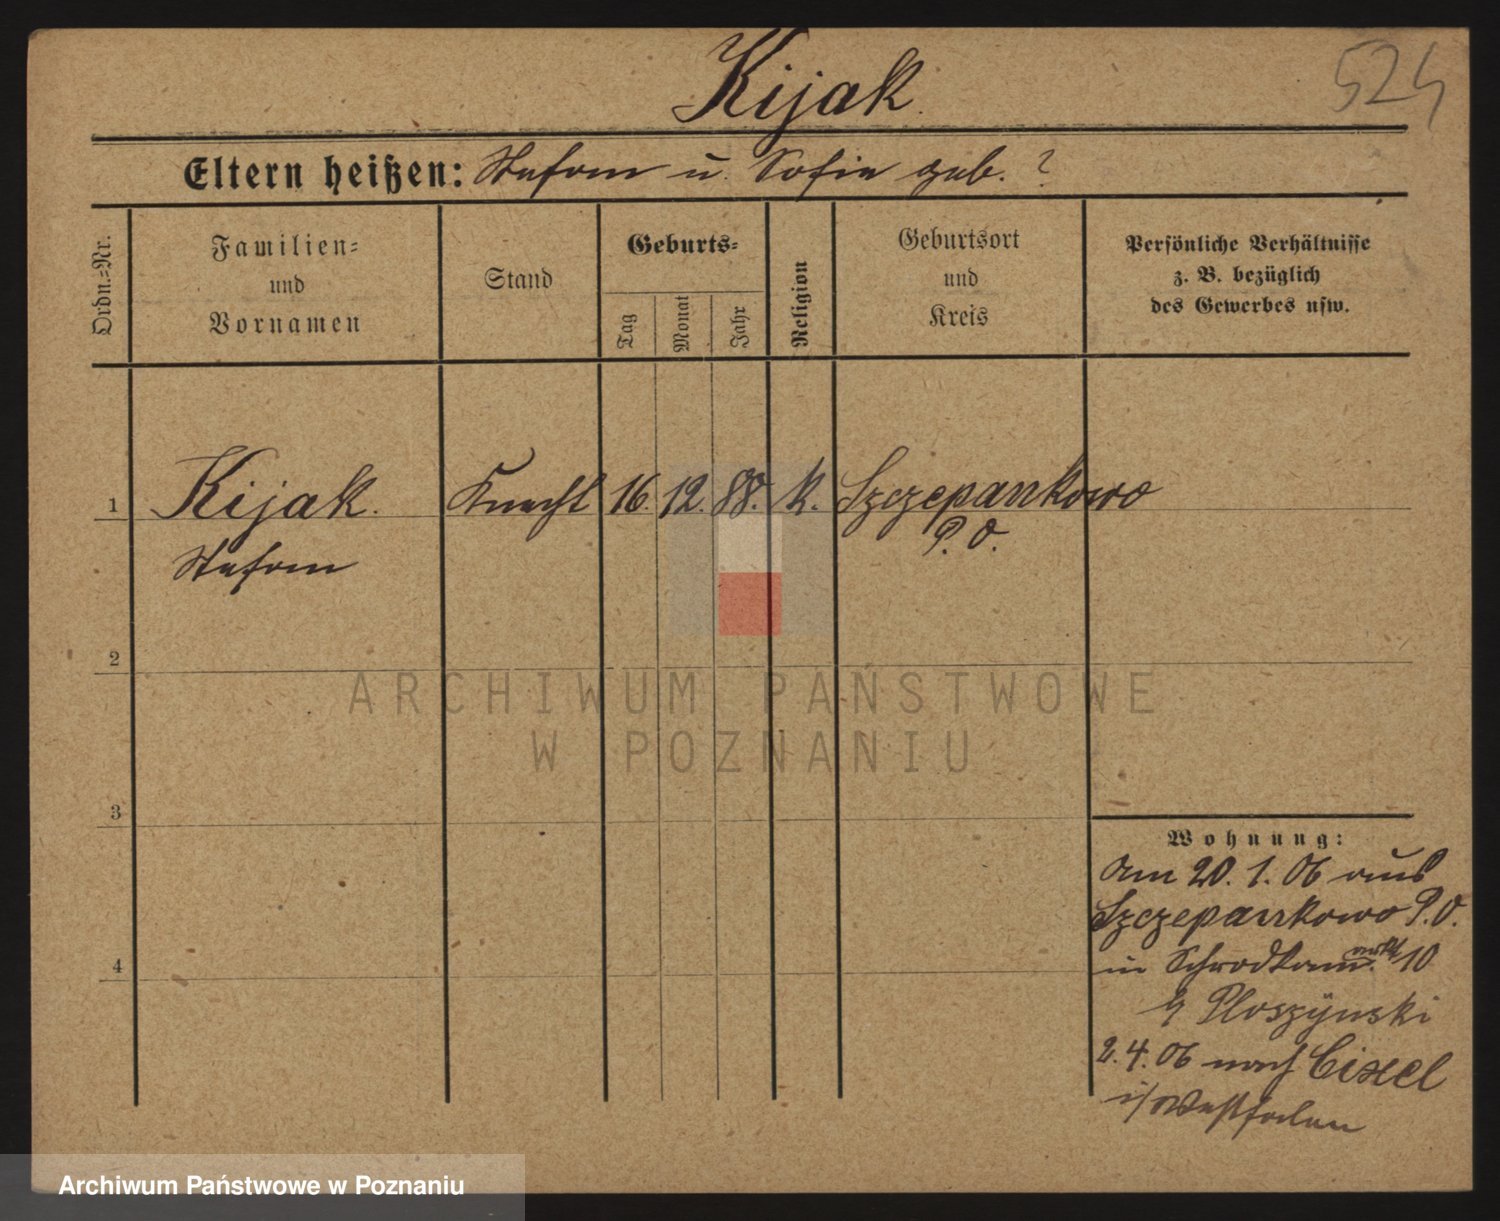 Kijak.
524
Eltern heißen: Stefan u. Sofia geb. ?
Ordn.=Nr.
Familien=
und
Vornamen
Stand
Geburts=
Tag
Monat
Jahr
Religion
Geburtsort
und
Kreis
Persönliche Verhältnisse
z. B. bezüglich
des Gewerbes usw.
1 Kijak. Knecht 16. 12. 88. k. Szczepankowo
Stefan P. O.
2
ARCHIWUM PAŃSTWOWE
W POZNANIU
3
Wohnung:
Am 20. 1. 06 aus
Szczepankowo P. O.
in Schrodkamarkt 10
b/ Ploszynski
2. 4. 06 nach
i/Westfalen
4
Archiwum Państwowe w Poznaniu